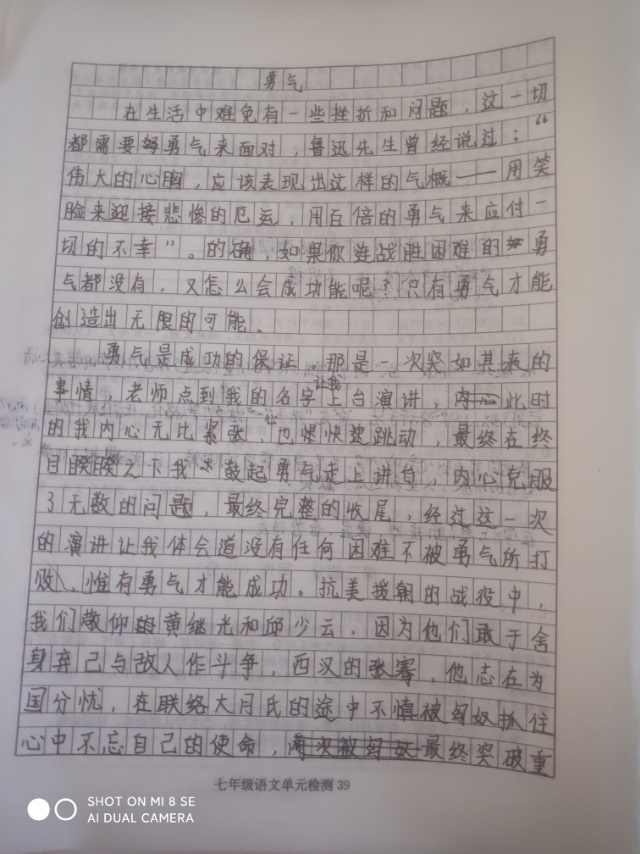 勇气
在生活中难免有一些挫折和问题，这一切
都需要努勇气来面对，鲁迅先生曾经说过：“
伟大的心胸，应该表现出这样的气概——用笑
脸来迎接悲惨的厄运，用百倍的勇气来应付一
切的不幸”。的确，如果你连战胜困难的勇
气都没有，又怎么会成功能呢？只有勇气才能
创造出无限的可能。
勇气是成功的保证。那是一次突如其来的
事情，老师点到我的名字让我上台演讲，内心此时
的我内心无比紧张，心也爆快速跳动，最终在终
目睽睽之下我鼓起勇气走上讲台，内心克服
了无数的问题，最终完整的收尾，经过这一次
的演讲让我体会道没有任何困难不被勇气所打
败，惟有勇气才能成功。抗美援朝的战役中，
我们敬仰的黄继光和邱少云，因为他们敢于舍
身弃己与敌人作斗争，西汉的张骞，他志在为
国分忧，在联络大月氏的途中不慎被匈奴抓住
心中不忘自己的使命，两次被匈奴最终突破重
七年级语文单元检测 39
SHOT ON MI 8 SE
AI DUAL CAMERA